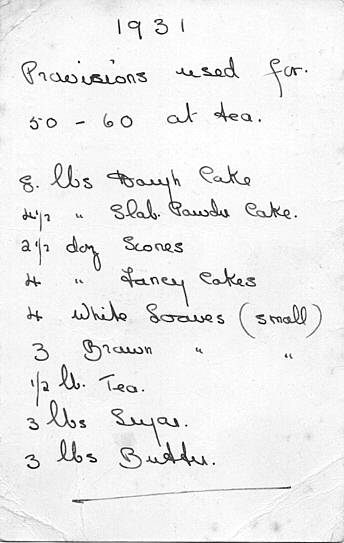 1931
Provisions used for.
50 - 60 at tea.
8. lbs Dough Cake
4 1/2 " Slab. Powder Cake.
2 1/2 doz Scones
4 " Fancy Cakes
4 White Loaves (small)
3 Brown " "
1/2 lb. Tea.
3 lbs Sugar.
3 lbs Butter.